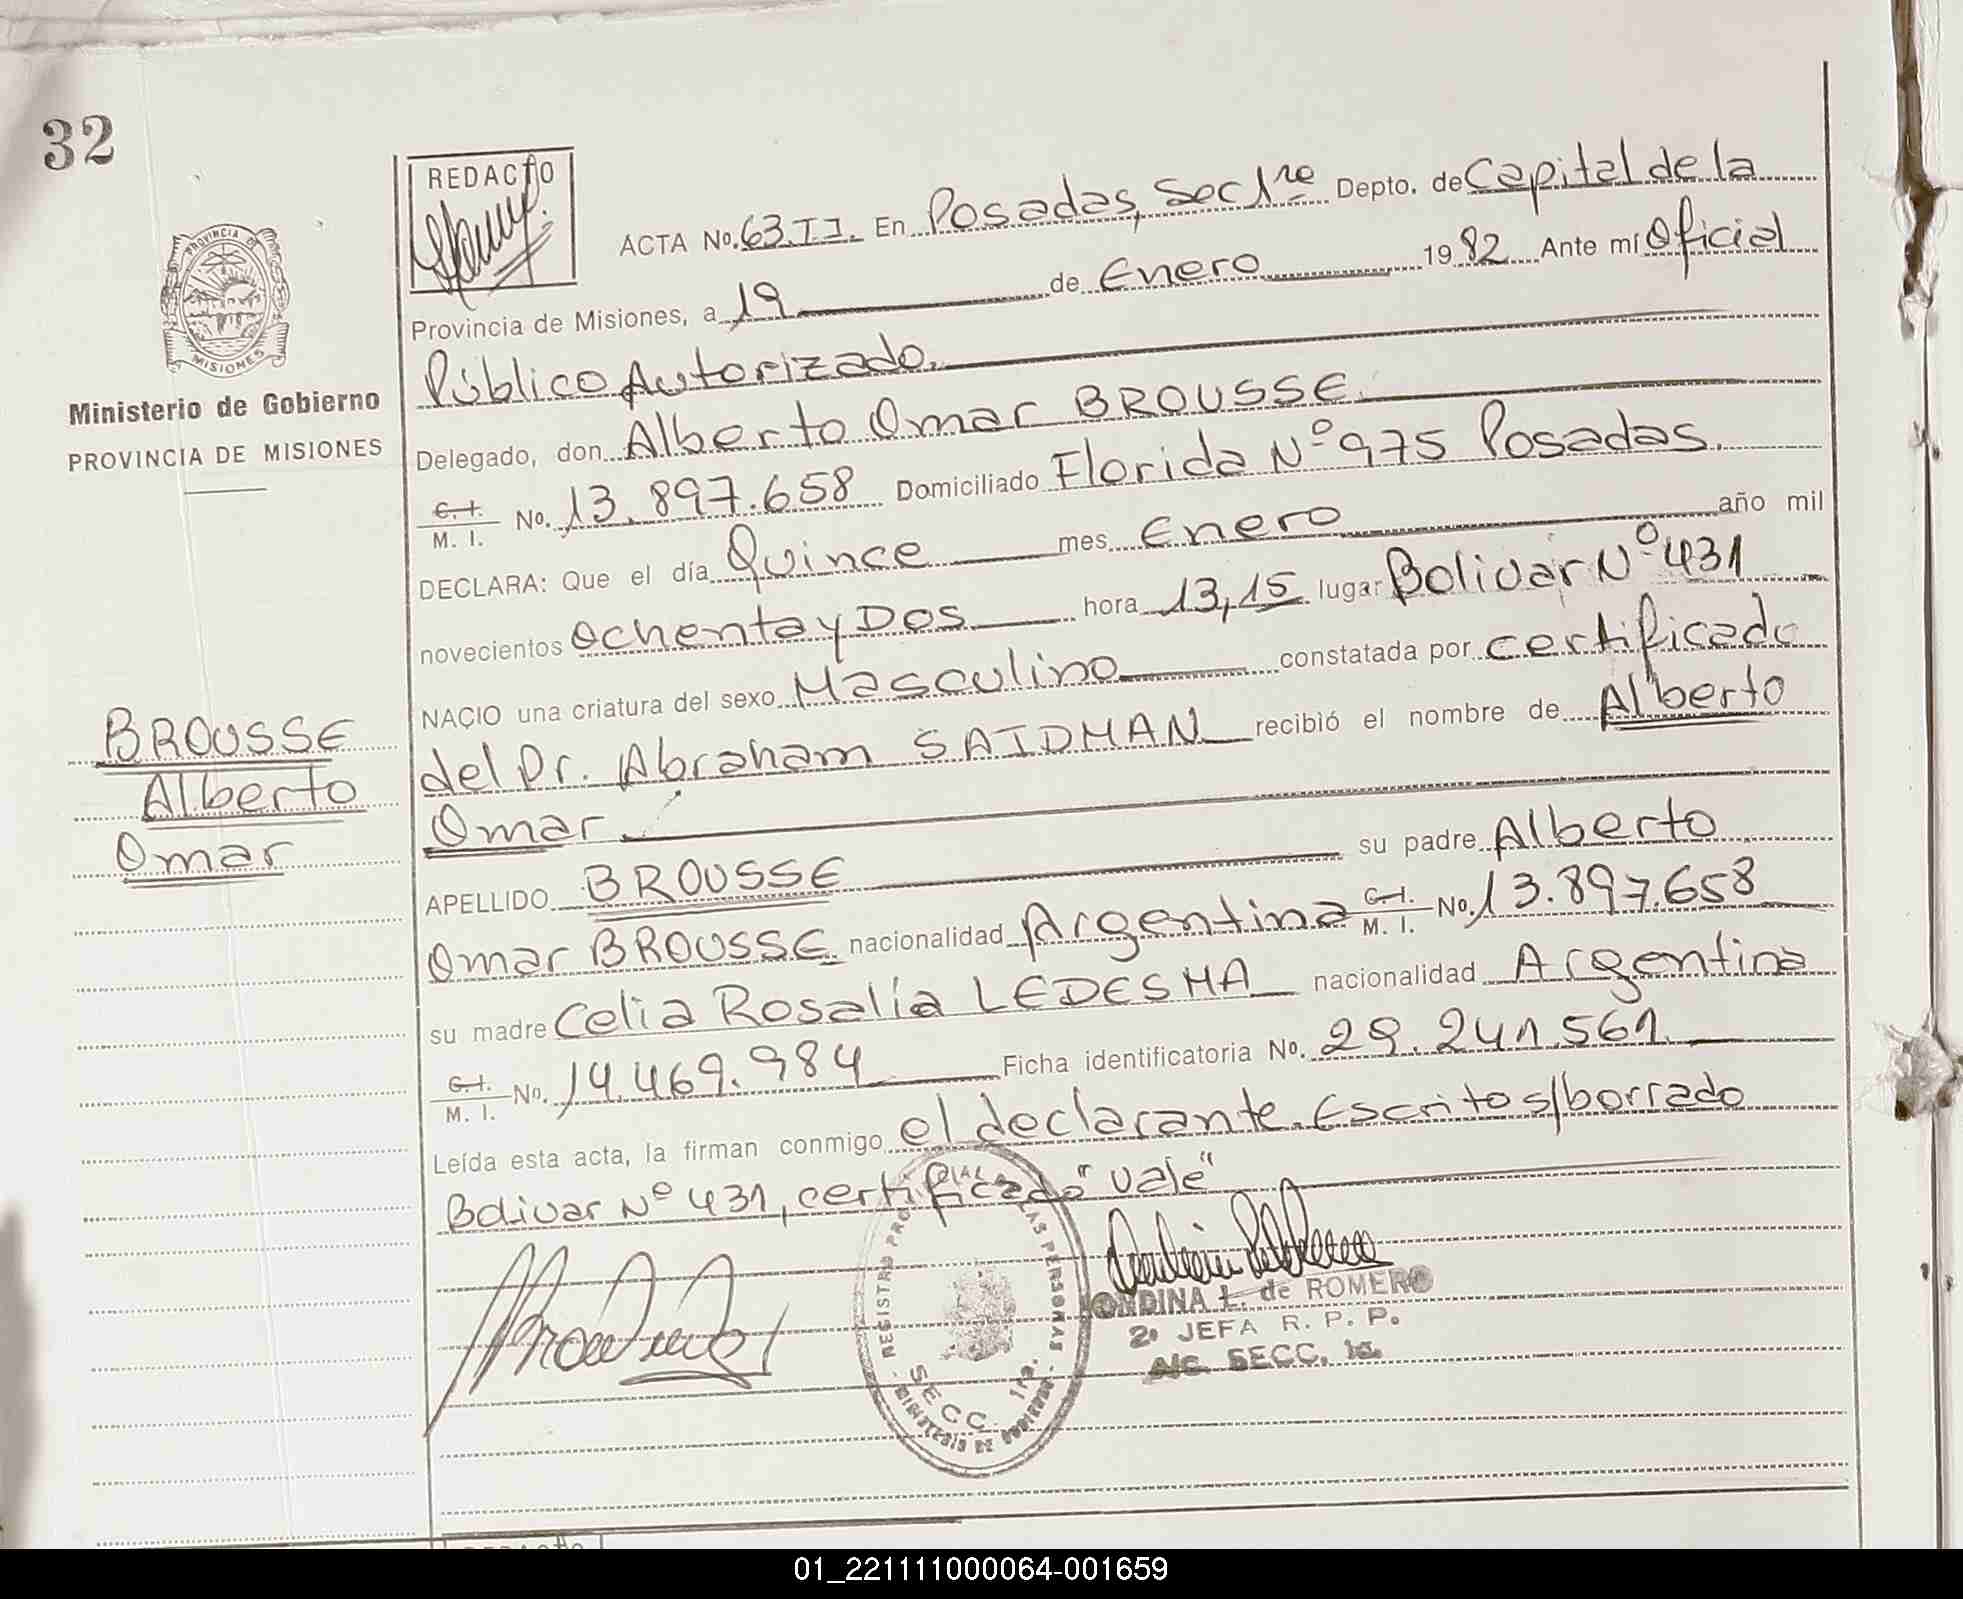 32
REDACTO
ACTA No. 63.II. En Posadas, Sec 1ra Depto. de Capital de la
Provincia de Misiones, a 19 de Enero 1982 Ante mí Oficial
Público Autorizado.
Delegado, don Alberto Omar BROUSSE.
C. I. M. I. No. 13.897.658 Domiciliado Florida Nº 975 Posadas.
DECLARA: Que el día Quince mes Enero año mil
novecientos Ochenta y Dos hora 13,15 lugar Bolivar Nº 431
NACIO una criatura del sexo Masculino constatada por certificado
del Dr. Abraham SAIDMAN recibió el nombre de Alberto
Omar
APELLIDO BROUSSE su padre Alberto
Omar BROUSSE nacionalidad Argentina C. I. M. I. No. 13.897.658
su madre Celia Rosalía LEDESMA nacionalidad Argentina
C. I. M. I. No. 14.469.984 Ficha identificatoria No. 29.241.561.
Leída esta acta, la firman conmigo el declarante. Escrito s/borrado
Bolivar Nº 431, certificado "vale"
PROVINCIA DE
MISIONES
Ministerio de Gobierno
PROVINCIA DE MISIONES
BROUSSE
Alberto
Omar
REGISTRO PROVINCIAL DE LAS PERSONAS
SECC. 1ra.
MINISTERIO DE GOBIERNO
ONDINA L. de ROMERO
2. JEFA R. P. P.
A/C. SECC. 1a.
01_221111000064-001659